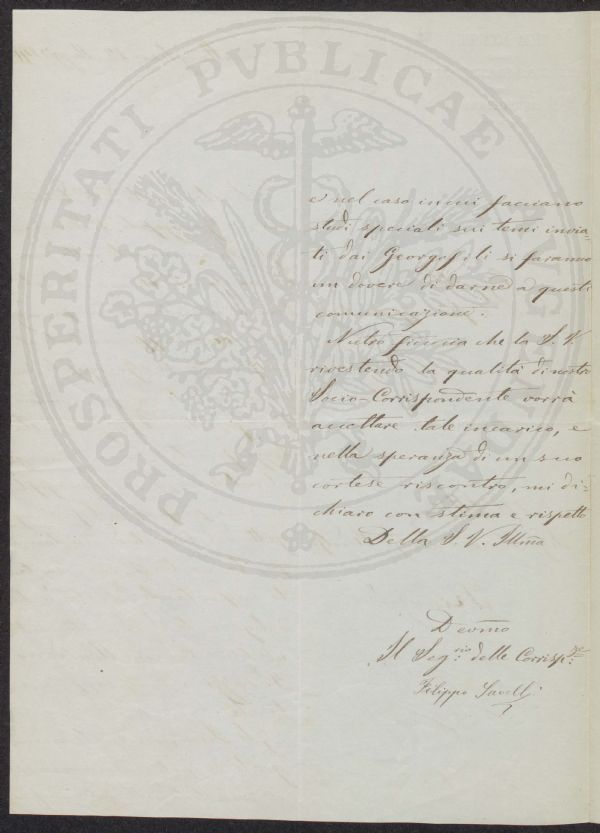 PROSPERITATI PVBLICAE AVGENDAE
e nel caso in cui facciano
studi speciali sui temi invia=
ti dai Georgofili si faranno
un dovere di darne a questi
comunicazione.
Nutro fiducia che la S. V.
rivestendo la qualità di nostro
Socio-Corrispondente vorrà
accettare tale incarico, e
nella speranza di un suo
cortese riscontro, mi di=
chiaro con stima e rispetto
Della S. V. Illma
Devmo
Il Segrio delle Corrispze
Filippo